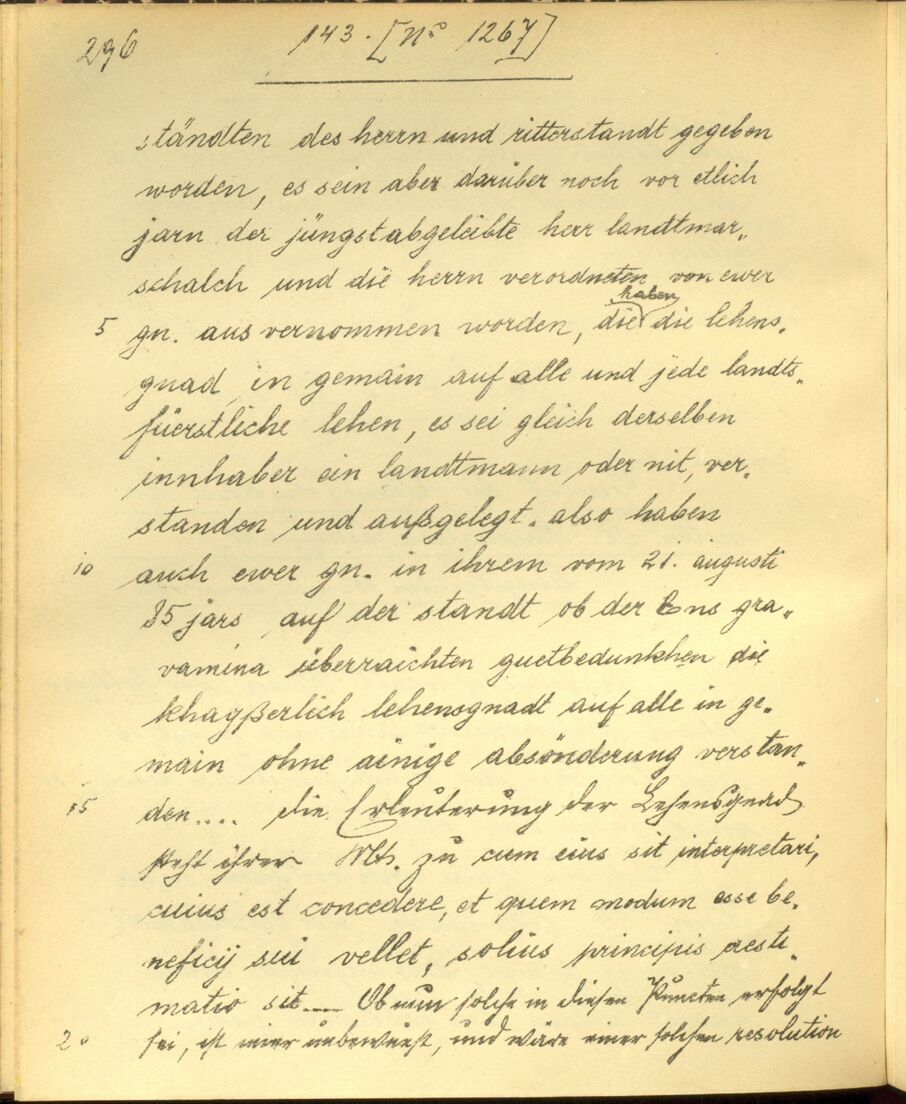 296
143. [No 1267]
ständten des herrn und ritterstandt gegeben
worden, es sein aber darüber noch vor etlich
jarn der jüngstabgeleibte herr landtmar„
schalch und die herrn verordneten von ewer
haben
5 gn. aus vernommen worden, die die lehens„
gnad in gemain auf alle und jede landts„
füerstliche lehen, es sei gleich derselben
innhaber ein landtmann oder nit, ver„
standen und außgelegt. also haben
10 auch ewer gn. in ihrem vom 21. augusti
85 jars auf der standt ob der Ens gra„
vamina überraichten guetbedunkhen die
khayßerlich lehensgnadt auf alle in ge„
main ohne ainige absönderung verstan„
15 den.... die Erleuterung der Lehensgnad
steht ihrer Mt. zu cum eius sit interpretari,
cuius est concedere, et quem modum esse be„
neficij sui vellet, solius principis aesti„
matio sit.... Ob nun solche in diesen Puncten erfolgt
20 sei, ist mier unbewust, und wäre einer solchen resolution